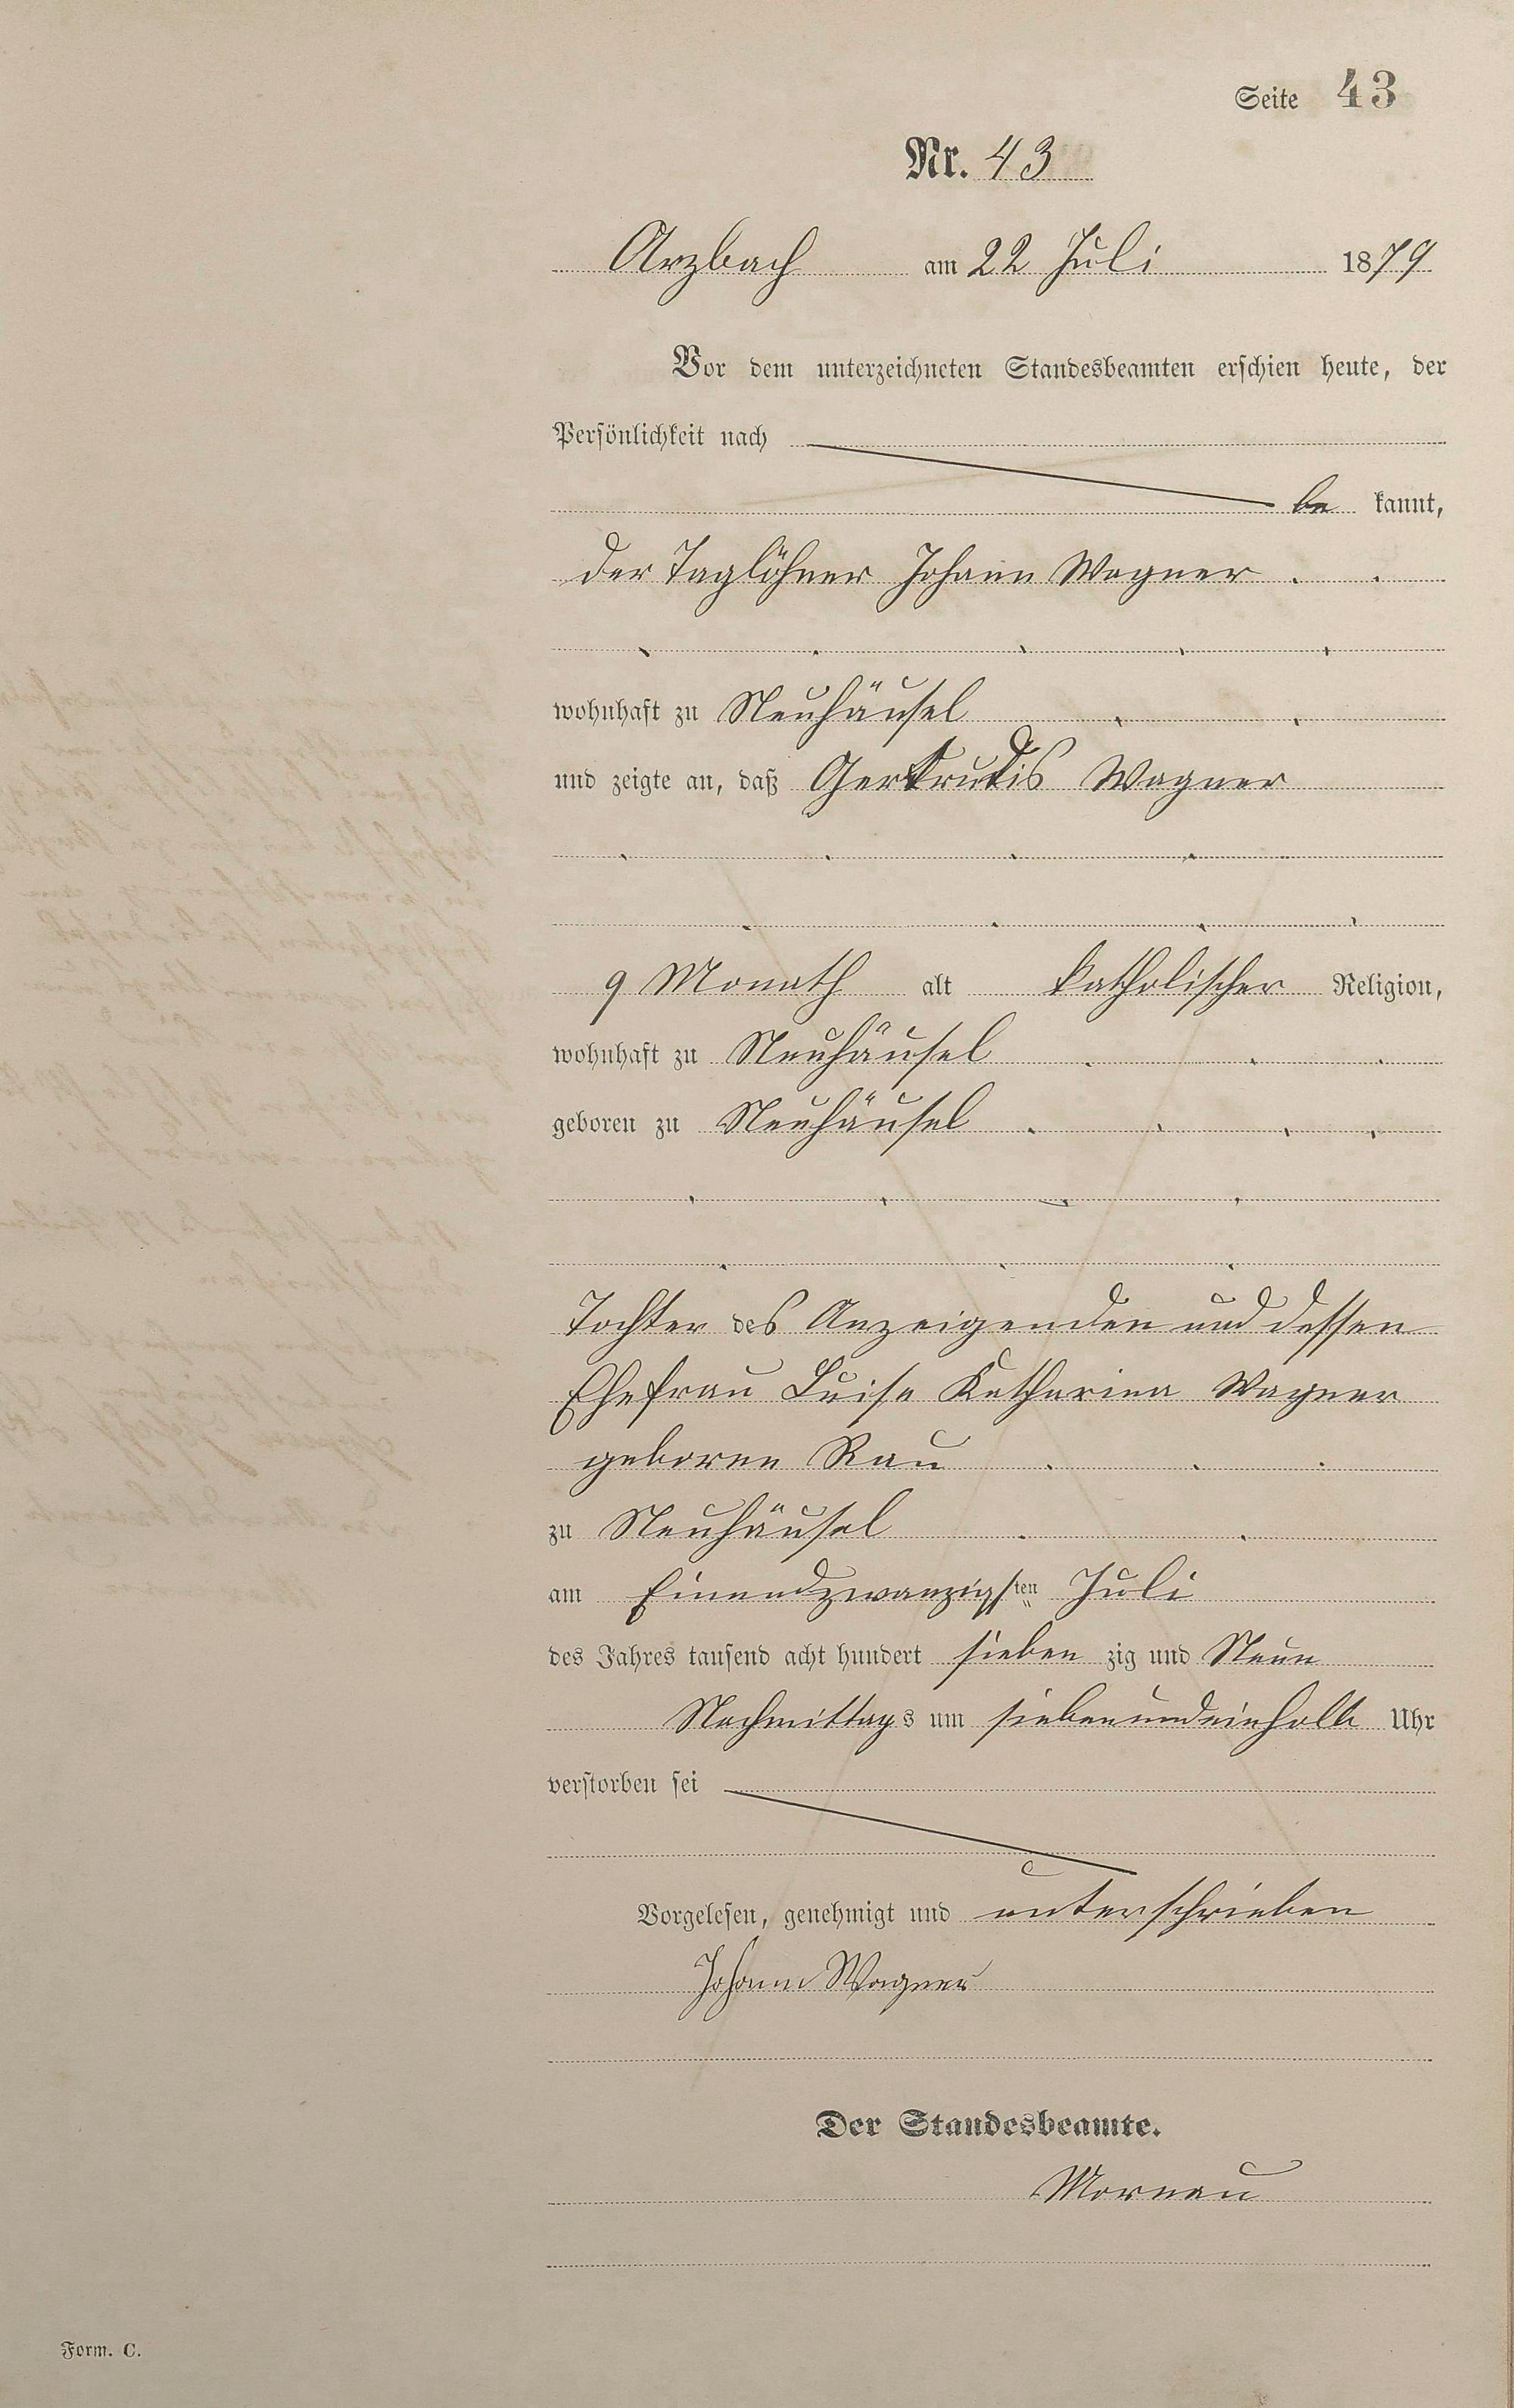 Seite 43
Nr. 43
Arzbach am 22 Juli 1879
Vor dem unterzeichneten Standesbeamten erschien heute, der
Persönlichkeit nach
be kannt,
der Taglöhner Johann Wagner
wohnhaft zu Neuhäusel
und zeigte an, daß Gertrudis Wagner
9 Monath alt katholischer Religion,
wohnhaft zu Neuhäusel
geboren zu Neuhäusel
Tochter des Anzeigenden und dessen
Ehefrau Luise Katharina Wagner
geborne Rau
zu Neuhäusel
am Einundzwanzigsten Juli
des Jahres tausend acht hundert sieben zig und Neun
Nachmittags um siebenundeinhalb Uhr
verstorben sei
Vorgelesen, genehmigt und unterschrieben
Johann Wagner
Der Standesbeamte.
Mornau
Form. C.